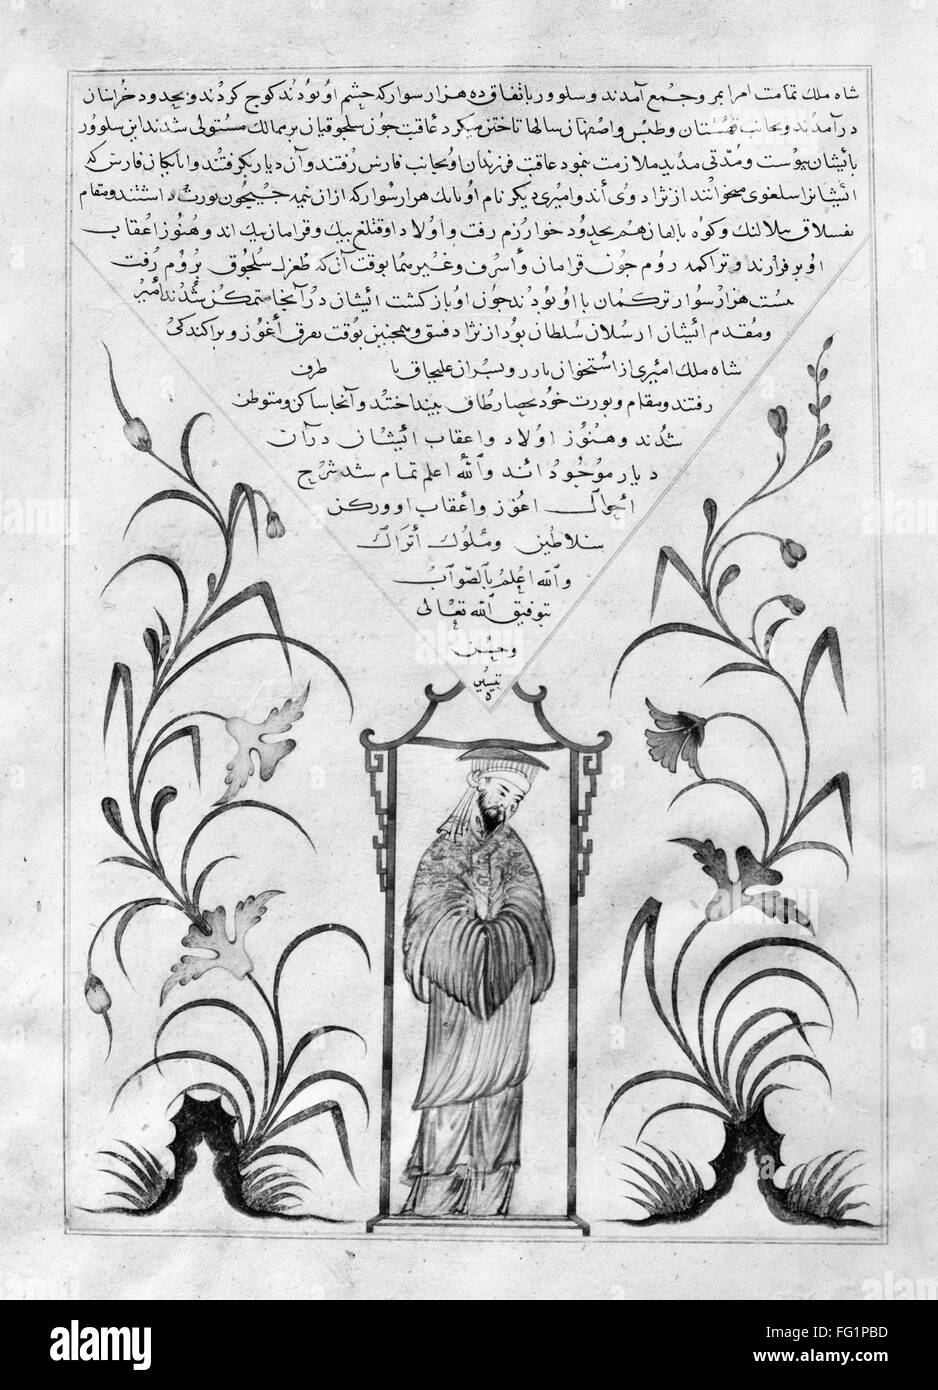 شاه ملک تمامت امرا بمرو جمع آمدند و سلوور باتفاق ده هزار سوار که حشم او بودند کوچ کردند و بحدود خراسان
درآمدند و بجانب قهستان و طبس و اصفهان سالها تاختن میکرد عاقبت چون سلجوقیان بر ممالک مستولی شدند این سلوور
بایشان پیوست و مدتی مدید ملازمت نمود عاقبت فرزندان او بجانب فارس رفتند و آن دیار بگرفتند و اتابکان فارس که
ایشانرا سلغری میخوانند از نژاد وی اند و امیری دیگر نام او با یک هزار سوار که از ان نیمه جیحون یورت داشتند و مقام
و کوه بحدود خوارزم رفت و اولاد او قتلغ بیک و قرامان بیک اند و هنوز اعقاب
او برقرارند و تراکمه روم چون قرامان و اسرف و غیرهما بوقت آن که طغرل سلجوق بروم رفت
بیست هزار سوار ترکمان با او بودند چون او بازگشت ایشان در آنجا متمکن شدند امیر
و مقدم ایشان ارسلان سلطان بود از نژاد و همچنین بوقت تفرق اغوز و پراکندگی
شاه ملک امیری از استخوان یازر و پسران علیجاق با طرف
رفتند و مقام و یورت خود بحصار طاق بینداختند و آنجا ساکن و متوطن
شدند و هنوز اولاد و اعقاب ایشان در آن
دیار موجود اند والله اعلم تمام شد شرح
احوال اغوز و اعقاب او و ذکر
سلاطین و ملوک اتراک
والله اعلم بالصواب
بتوفیق الله تعالی
و حسن
تیسیره
alamy
Image ID: FG1PBD
www.alamy.com